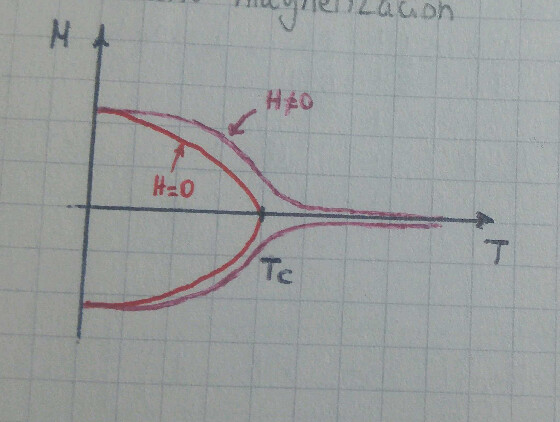 magnetización
M
H≠0
H=0
Tc
T